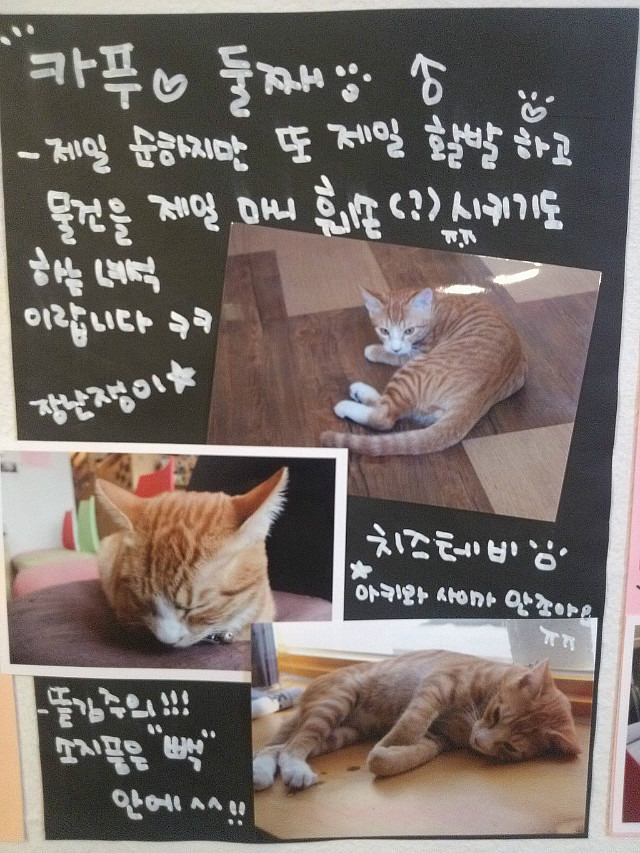 카푸♡ 둘째 ♂
- 제일 순하지만 또 제일 활발하고
물건을 제일 마니 훼손(?)시키기도
ㅠ.ㅠ
하는 녀석
이랍니다 ㅋㅋ
장난쟁이☆
치즈테비
☆아키와 사이가 안좋아요
ㅠㅠ
- 똘끼주의!!!
소지품은 "빽"
안에^^!!